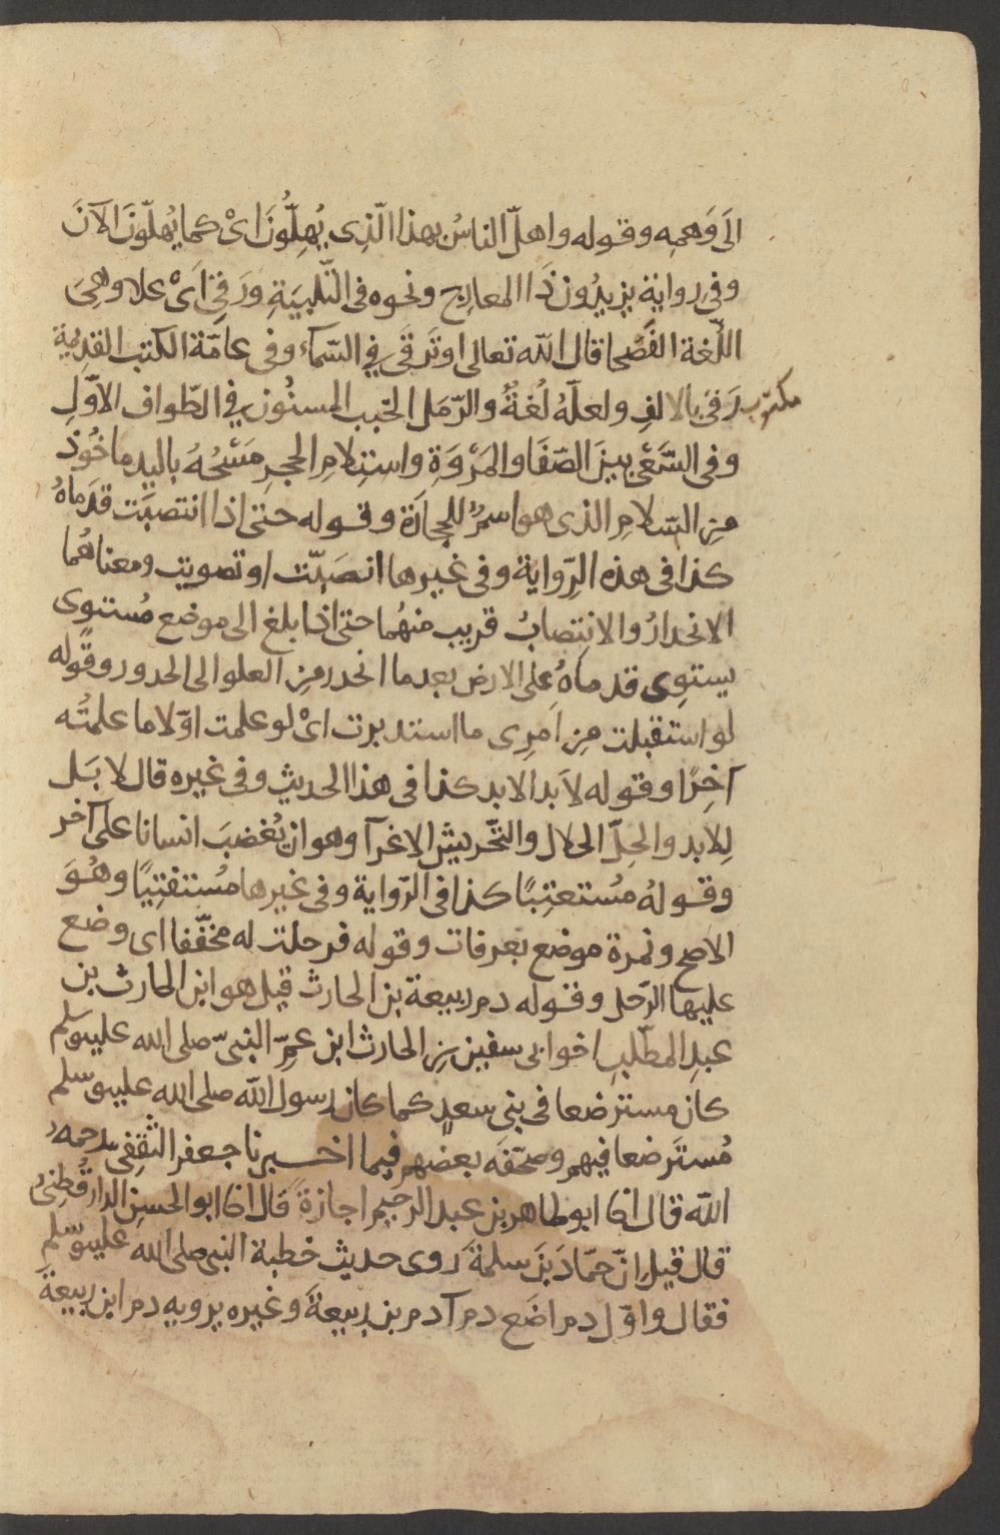 الى وَهمِه وقوله واهلّ الناسُ بهذا الّذِى يُهِلُّونَ اىْ كما يُهلّونَ الآنَ
وفى رواية يزيدُون ذَا المعارِج ونحوه فى التّلبيَةِ ورَقِىَ اَىْ علا وهِىَ
اللّغة الفُصْحا قال الله تعالى اوتَرقَى فِي السّماء وفى عامّة الكتب القدِيمة
مكتوب رَقى بالالفِ ولعلّهُ لُغةٌ والرّمَل الخبب المسنُون فى الطّواف الاوّلِ
وفى السَّعْى بينَ الصّفَا والمَرْوَةِ واستِلامِ الحجرِ مَسْحُهُ باليدِ ماخُوذ
مِن السّلام الذى هو اسمٌ للحجارَة وقوله حتى اذا انتصبَت قدَماهُ
كذا فى هذه الرِّواية وفى غيرها انصَبّت او تصوبت ومعناهُما
الانحدارُ والانتِصابُ قريب منهُما حتى اذا بلغ الى موضع مُستوى
يستوِى قدماهُ على الارض بعدما انحدر مِن العلو الى الحدور وقوله
لو استقبلت مِن امرِى ما استدبرت اىْ لو علمت اوّلا ما علمتُه
آخِرًا وقوله لاَبد الابد كذا فى هذا الحديثِ وفى غيره قال لا بَل
لِلابد والحِلّ الحلال والتّحريش الاغرآ وهو ان يُغضبَ انسانا على آخر
وقولهُ مُستعتِبًا كذا فى الرّواية وفى غيرها مُستفتِيًا وهُوَ
الاصح ونمرة موضع بعرفات وقوله فرحلت له مخفّفا اى وضع
عليها الرّحل وقوله دم ربيعة بن الحارث قيل هو ابن الحارث بن
عبدِ المطّلبِ اخوابى سفين بنِ الحارث ابن عمِّ النبىّ صلى الله عليه وسلم
كان مسترضعا فى بنى سعدٍ كما كان رسول الله صلى الله عليه وسلم
مُسترَضعا فيهم وصحّفَه بعضهم فيما اخبرنا جعفر الثقفِى رحمهُ
الله قال انا ابو طاهر بن عبد الرحيم اجازةً قال انا ابو الحسن الدارقُطِنىُّ
قال قيل انّ حمّادَ بنَ سلمةَ روى حديث خطبة النبى صلى الله عليه وسلم
فقال واوّل دم اضَع دم آدم بن ربيعةَ وغيره يرويه دم ابن ربيعةَ